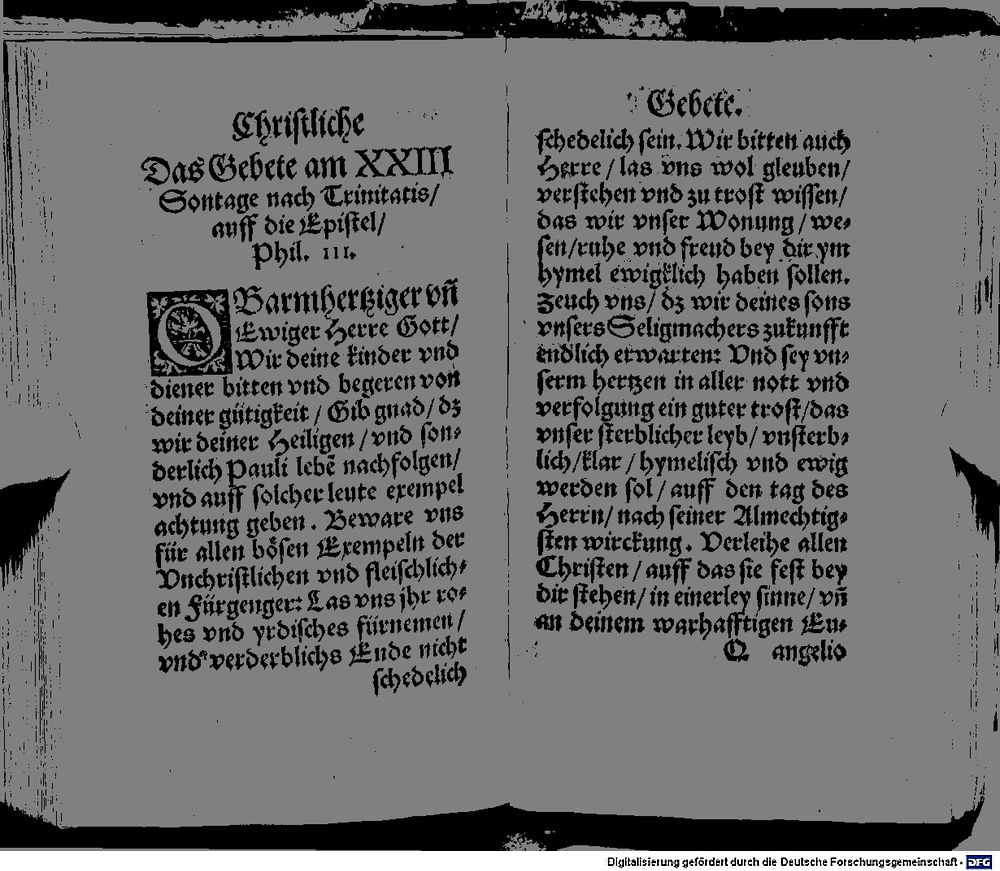 Christliche
Das Gebete am XXIII
Sontage nach Trinitatis/
auff die Epistel/
Phil. III.
O Barmhertziger vñ
Ewiger Herre Gott/
Wir deine kinder vnd
diener bitten vnd begeren von
deiner gütigkeit / Gib gnad/ dz
wir deiner Heiligen / vnd son⸗
derlich Pauli lebẽ nachfolgen/
vnd auff solcher leute exempel
achtung geben. Beware vns
für allen bösen Exempeln der
Vnchristlichen vnd fleischlich⸗
en Fürgenger: Las vns jhr ro⸗
hes vnd yrdisches fürnemen/
vnd verderblichs Ende nicht
schedelich
Gebete.
schedelich sein. Wir bitten auch
Herre / las vns wol gleuben/
verstehen vnd zu trost wissen/
das wir vnser Wonung / we⸗
sen/ruhe vnd freud bey dir ym
hymel ewigklich haben sollen.
Zeuch vns/ dz wir deines sons
vnsers Seligmachers zukunfft
endlich erwarten: Vnd sey vn⸗
serm hertzen in aller nott vnd
verfolgung ein guter trost/das
vnser sterblicher leyb/ vnsterb⸗
lich/klar / hymelisch vnd ewig
werden sol / auff den tag des
Herrn/ nach seiner Almechtig⸗
sten wirckung. Verleihe allen
Christen / auff das sie fest bey
dir stehen/ in einerley sinne/ vñ
an deinem warhafftigen Eu⸗
Q angelio
Digitalisierung gefördert durch die Deutsche Forschungsgemeinschaft - DFG